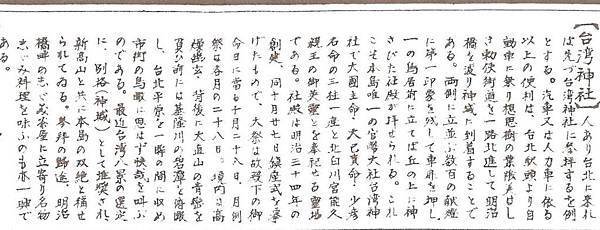 【台湾神社】 人あり台北に来れ
ば先づ台湾神社に参拝するを例
とする。汽車又は人力車に依る
以上の便利は、台北駅頭より自
動車に乗り想思樹の葉隠美はし
き勅使街道を一路北進して明治
橋を渡り神域に到着することで
ある。両側に立並ぶ数百の献燈
に第一印象を残して車扉を押し
一の鳥居前に立てば丘の上に神
さびた社殿が拝せられる。これ
こそ本島唯一の官幣大社台湾神
社で大国主命・大己貴命・少彦
名命の三柱一座と北白川宮能久
親王の御英霊とを奉祀せる霊場
である。社殿は明治三十四年の
創建、同年十月廿七日鎮座式を挙
げたもので、大祭は故殿下の御
命日に当る十月二十八日、月例
祭は各月の二十八日。境内は高
燥幽玄、背後に大直山の青巒を
負ひ前には基隆川の碧潭を俯瞰
し、台北平原を一眸の間に収め
市街の鳥瞰に思はず快哉を叫ぶ
のである。最近台湾八景の選定
に、別格(神域)として推奨され、
新高山と共に本島の双絶と称せ
られてゐる。参拝の帰途、明治
橋畔の志るこ茶屋に立寄り名物
志じみ料理を味ふのも亦一興で
ある。